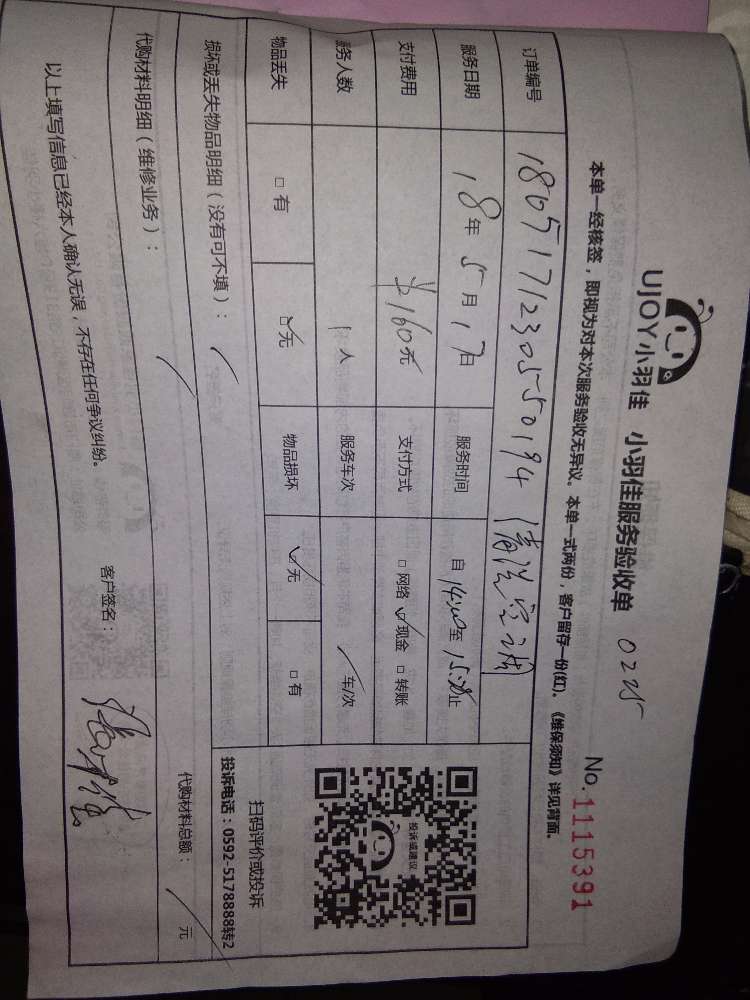 UJOY小羽佳 小羽佳服务验收单 0225 No.1115391
本单一经核签，即视为对本次服务验收无异议。本单一式两份，客户留存一份(红)。《维保须知》详见背面。
订单编号 1805171230550194 清洗空调
服务日期 18年5月17日 服务时间 自14:00至15:30止
支付费用 ¥160元 支付方式 □网络 ☑现金 □转账
服务人数 1人 服务车次 /车/次
物品丢失 □有 ☑无 物品损坏 ☑无 □有
投诉或建议
扫码评价或投诉
投诉电话：0592-5178888转2
损坏或丢失物品明细（没有可不填）： /
代购材料明细（维修业务）： / 代购材料总额： / 元
以上填写信息已经本人确认无误，不存在任何争议纠纷。 客户签名：